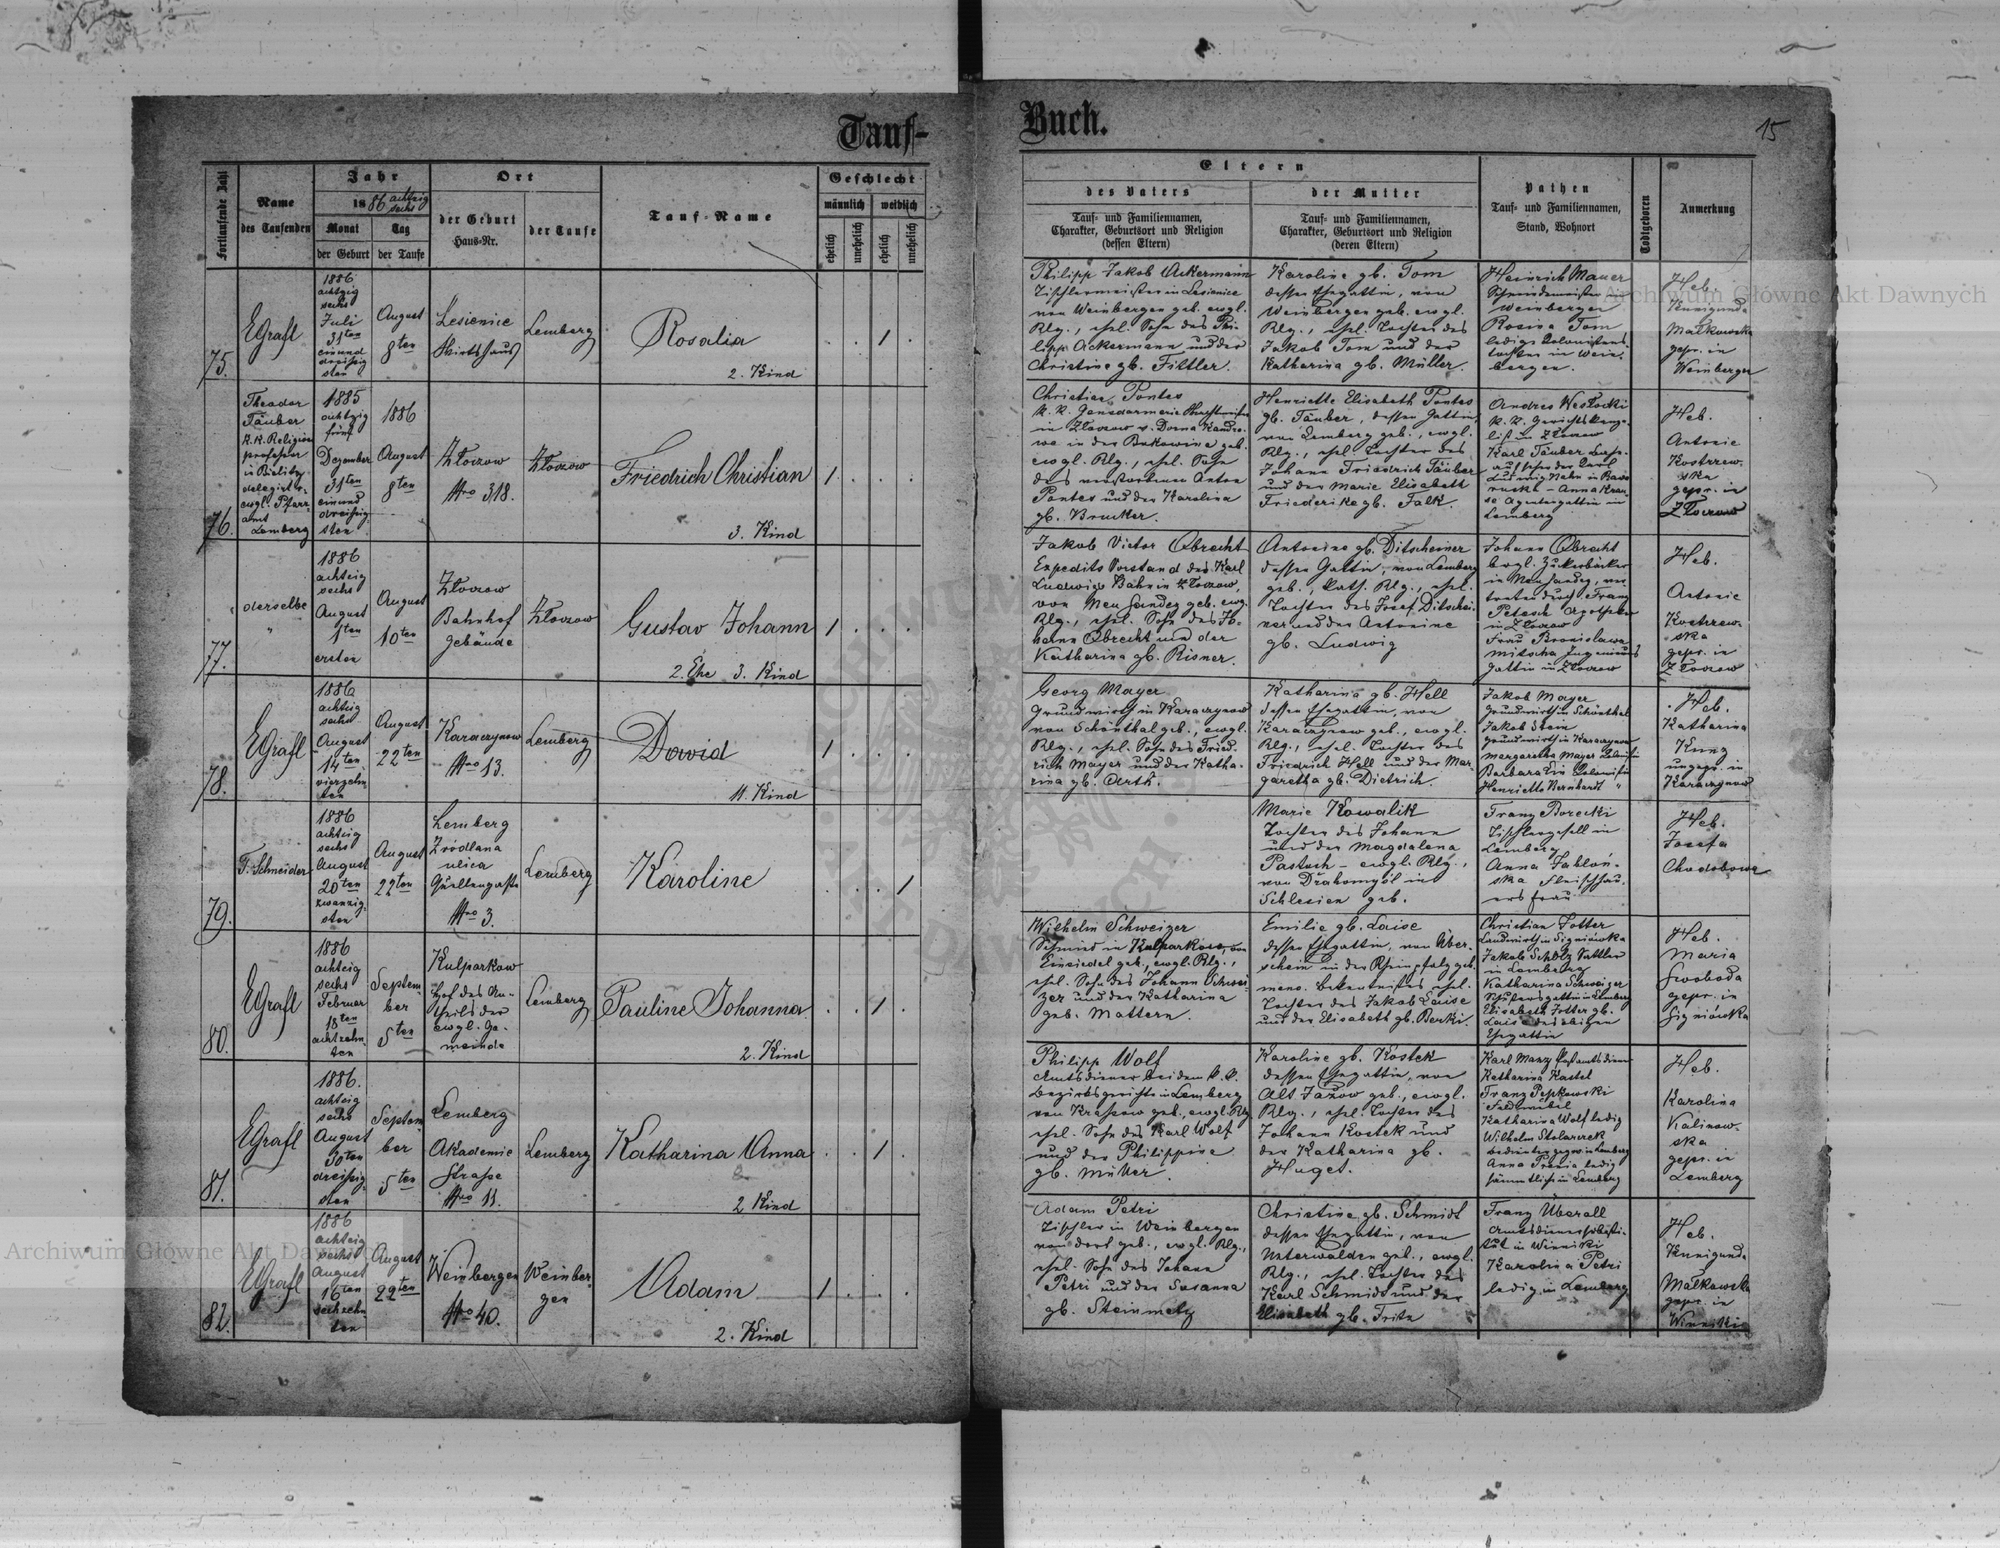 Tauf-
Buch.
15
Fortlaufende Zahl
Name
des Taufenden
Jahr
1886 achtzig
sechs
Monat
Tag
der Geburt
der Taufe
Ort
der Geburt
Haus-Nr.
der Taufe
Tauf-Name
Geschlecht
männlich
weiblich
ehelich
unehelich
ehelich
unehelich
Eltern
des Vaters
Tauf- und Familiennamen,
Charakter, Geburtsort und Religion
(dessen Eltern)
der Mutter
Tauf- und Familiennamen,
Charakter, Geburtsort und Religion
(deren Eltern)
Pathen
Tauf- und Familiennamen,
Stand, Wohnort
Todtgeboren
Anmerkung
75.
EGrafl
1886
achtzig
sechs
Juli
31ten
einund
dreißig
sten
August
8ten
Lesienice
Wirtshaus
Lemberg
Rosalia
2. Kind
1
Philipp Jakob Ackermann
Tischlermeister in Lesienice
von Weinbergen geb. evgl.
Rlg., ehel. Sohn des Phi-
lipp Ackermann und der
Christine gb. Fittler.
Karoline gb. Tom
dessen Ehegattin, von
Weinbergen geb. evgl.
Rlg., ehel. Tochter des
Jakob Tom und der
Katharina gb. Müller.
Heinrich Mauer
Schmiedemeister
Weinbergen
Rosina Tom
ledige Colonistens
tochter in Wein-
bergen.
Heb.
Kunigunda
Małkowska
gepr. in
Weinbergen
76.
Theodor
Täuber
k.k. Religions
professor
in Bielitz
delegirt v.
evgl. Pfarr-
amt
Lemberg
1885
achtzig
fünf
Dezember
31ten
einund
dreißig-
sten
1886
August
8ten
Złoczow
Nro 318.
Złoczow
Friedrich Christian
3. Kind
1
Christian Pontes
k. k. Gensdarmerie Wachtmeister
in Złoczow v. Dorna Kandre-
we in der Bukowina geb.
evgl. Rlg., ehel. Sohn
des verstorbenen Anton
Pontes und der Karolina
gb. Brucker.
Henriette Elisabeth Pontes
gb. Täuber, dessen Gattin,
von Lemberg geb., evgl.
Rlg., ehel. Tochter des
Johann Friedrich Täuber
und der Marie Elisabeth
Friederike gb. Falk.
Andres Westocki
k. k. Gerichtskanze-
list in Złoczow
Karl Täuber
Ludwig Bahn in Rawa
ruska - Anna Kran-
se Agentengattin in
Lemberg
Heb.
Antonie
Kostrzew-
ska
gepr. in
Złoczow
77.
derselbe
"
1886
achtzig
sechs
August
1ten
ersten
August
10ten
Złoczow
Bahnhof
gebäude
Złoczow
Gustav Johann
2. Ehe 3. Kind
1
Jakob Victor Obrecht
Expedits Vorstand der Karl
Ludwigs Bahn in Złoczow,
von Neu Sandez geb. evg.
Rlg., ehel. Sohn des Jo-
hann Obrecht und der
Katharina gb. Risner.
Antonine gb. Ditscheiner
dessen Gattin, von Lemberg
geb., kath. Rlg., ehel.
Tochter des Josef Ditschei-
ner und der Antonine
gb. Ludwig
Johann Obrecht
brgl. Zuckerbäcker
in Neu Sandez, ver-
treten durch Franz
Petesch Apotheker
in Złoczow
Frau Bronislawa
Mitscha Ingenieurs
Gattin in Złoczow
Heb.
Antonie
Kostrzew-
ska
gepr. in
Złoczow
78.
EGrafl
1886
achtzig
sechs
August
14ten
vierzehn-
ten
August
22ten
Karaczynow
Nro 13.
Lemberg
David
11. Kind
1
Georg Mayer
Grundwirth in Karaczynow
von Schönthal geb., evgl.
Rlg., ehel. Sohn des Fried-
rich Mayer und der Katha-
rina gb. Arth.
Katharina gb. Hell
dessen Ehegattin, von
Karaczynow geb., evgl.
Rlg., ehel. Tochter des
Friedrich Hell und der Mar-
garetha gb. Dietrich.
Jakob Mayer
Grundwirth in Schönthal
Jakob Stein
Grundwirth in Karaczynow
Margaretha Mayer Colonistin
Barbara Lis Colonistin
Henriette Bernhardt "
Heb.
Katharina
Kung
ungepr. in
Karaczynow
79.
T. Schneider
1886
achtzig
sechs
August
20ten
zwanzig-
sten
August
22ten
Lemberg
Zrodlana
ulica
Quellengasse
Nro 3.
Lemberg
Karoline
1
Marie Kowalik
Tochter des Johann
und der Magdalena
Pastuch - evgl. Rlg.,
von Drahomyśl in
Schlesien geb.
Franz Borecki
Tischlergesell in
Lemberg
Anna Jabłoń-
ska Fleischhau-
ers frau
Heb.
Josefa
Chudobowa
80.
EGrafl
1886
achtzig
sechs
Februar
18ten
achtzehn-
ten
Septem-
ber
5ten
Kulparkow
Hof des An-
theils der
evgl. Ge-
meinde
Lemberg
Pauline Johanna
2. Kind
1
Wilhelm Schweizer
Schmied in Kulparkow, von
Einsiedel geb., evgl. Rlg.,
ehel. Sohn des Johann Schwei-
zer und der Katharina
geb. Mattern.
Emilie gb. Laise
dessen Ehegattin, von Über-
schein in der Rheinpfalz geb.
meno. Bekentnisses ehel.
Tochter des Jakob Laise
und der Elisabeth gb. Berki.
Christian Jotter
Landwirth in Sygniówka
Jakob Scholz Sattler
in Lemberg
Katharina Schweizer
Schlossersgattin in Lemberg
Elisabeth Jotter gb.
Laise des obigen
Ehegattin
Heb.
Maria
Swoboda
gepr. in
Sygniówka
81.
EGrafl
1886.
achtzig
sechs
August
30ten
dreißig-
sten
Septem
ber
5ten
Lemberg
Akademie
Straße
Nro 11.
Lemberg
Katharina Anna
2 Kind
1
Philipp Wolf
Amtsdiener bei dem k. k.
Bezirksgericht in Lemberg
von Krasow geb., evgl. Rlg
ehel. Sohn des Karl Wolf
und der Philippine
gb. Müller.
Karoline gb. Kostek
dessen Ehegattin, von
Alt Jazow geb., evgl.
Rlg., ehel. Tochter des
Johann Kostek und
der Katharina gb.
Huget.
Karl Manz Postamtsdiener
Katharina Kastel
Franz Pepkowski
Feldwebel
Katharina Wolf ledig
Wilhelm Stolarczek
Bediensteter gegw. in Lemberg
Anna Preria ledig
sämmtlich in Lemberg
Heb.
Karolina
Kalinow-
ska
gepr. in
Lemberg
82.
EGrafl
1886
achtzig
sechs
August
16ten
sechzehn-
ten
August
22ten
Weinbergen
Nro 40.
Weinber-
gen
Adam
2. Kind
1
Adam Petri
Tischler in Weinbergen
von dort geb., evgl. Rlg.,
ehel. Sohn des Johann
Petri und der Susanna
gb. Steinmetz
Christine gb. Schmidt
dessen Ehegattin, von
Unterwalden geb., evgl.
Rlg., ehel. Tochter des
Karl Schmidt und der
Elisabeth gb. Fritz
Franz Überall
Amtsdienersubsti-
tut in Winniki
Karolina Petri
ledig in Lemberg
Heb.
Kunigunde
Małkowska
gepr. in
Winniki
Archiwum Główne Akt Dawnych
Archiwum Główne Akt Dawnych